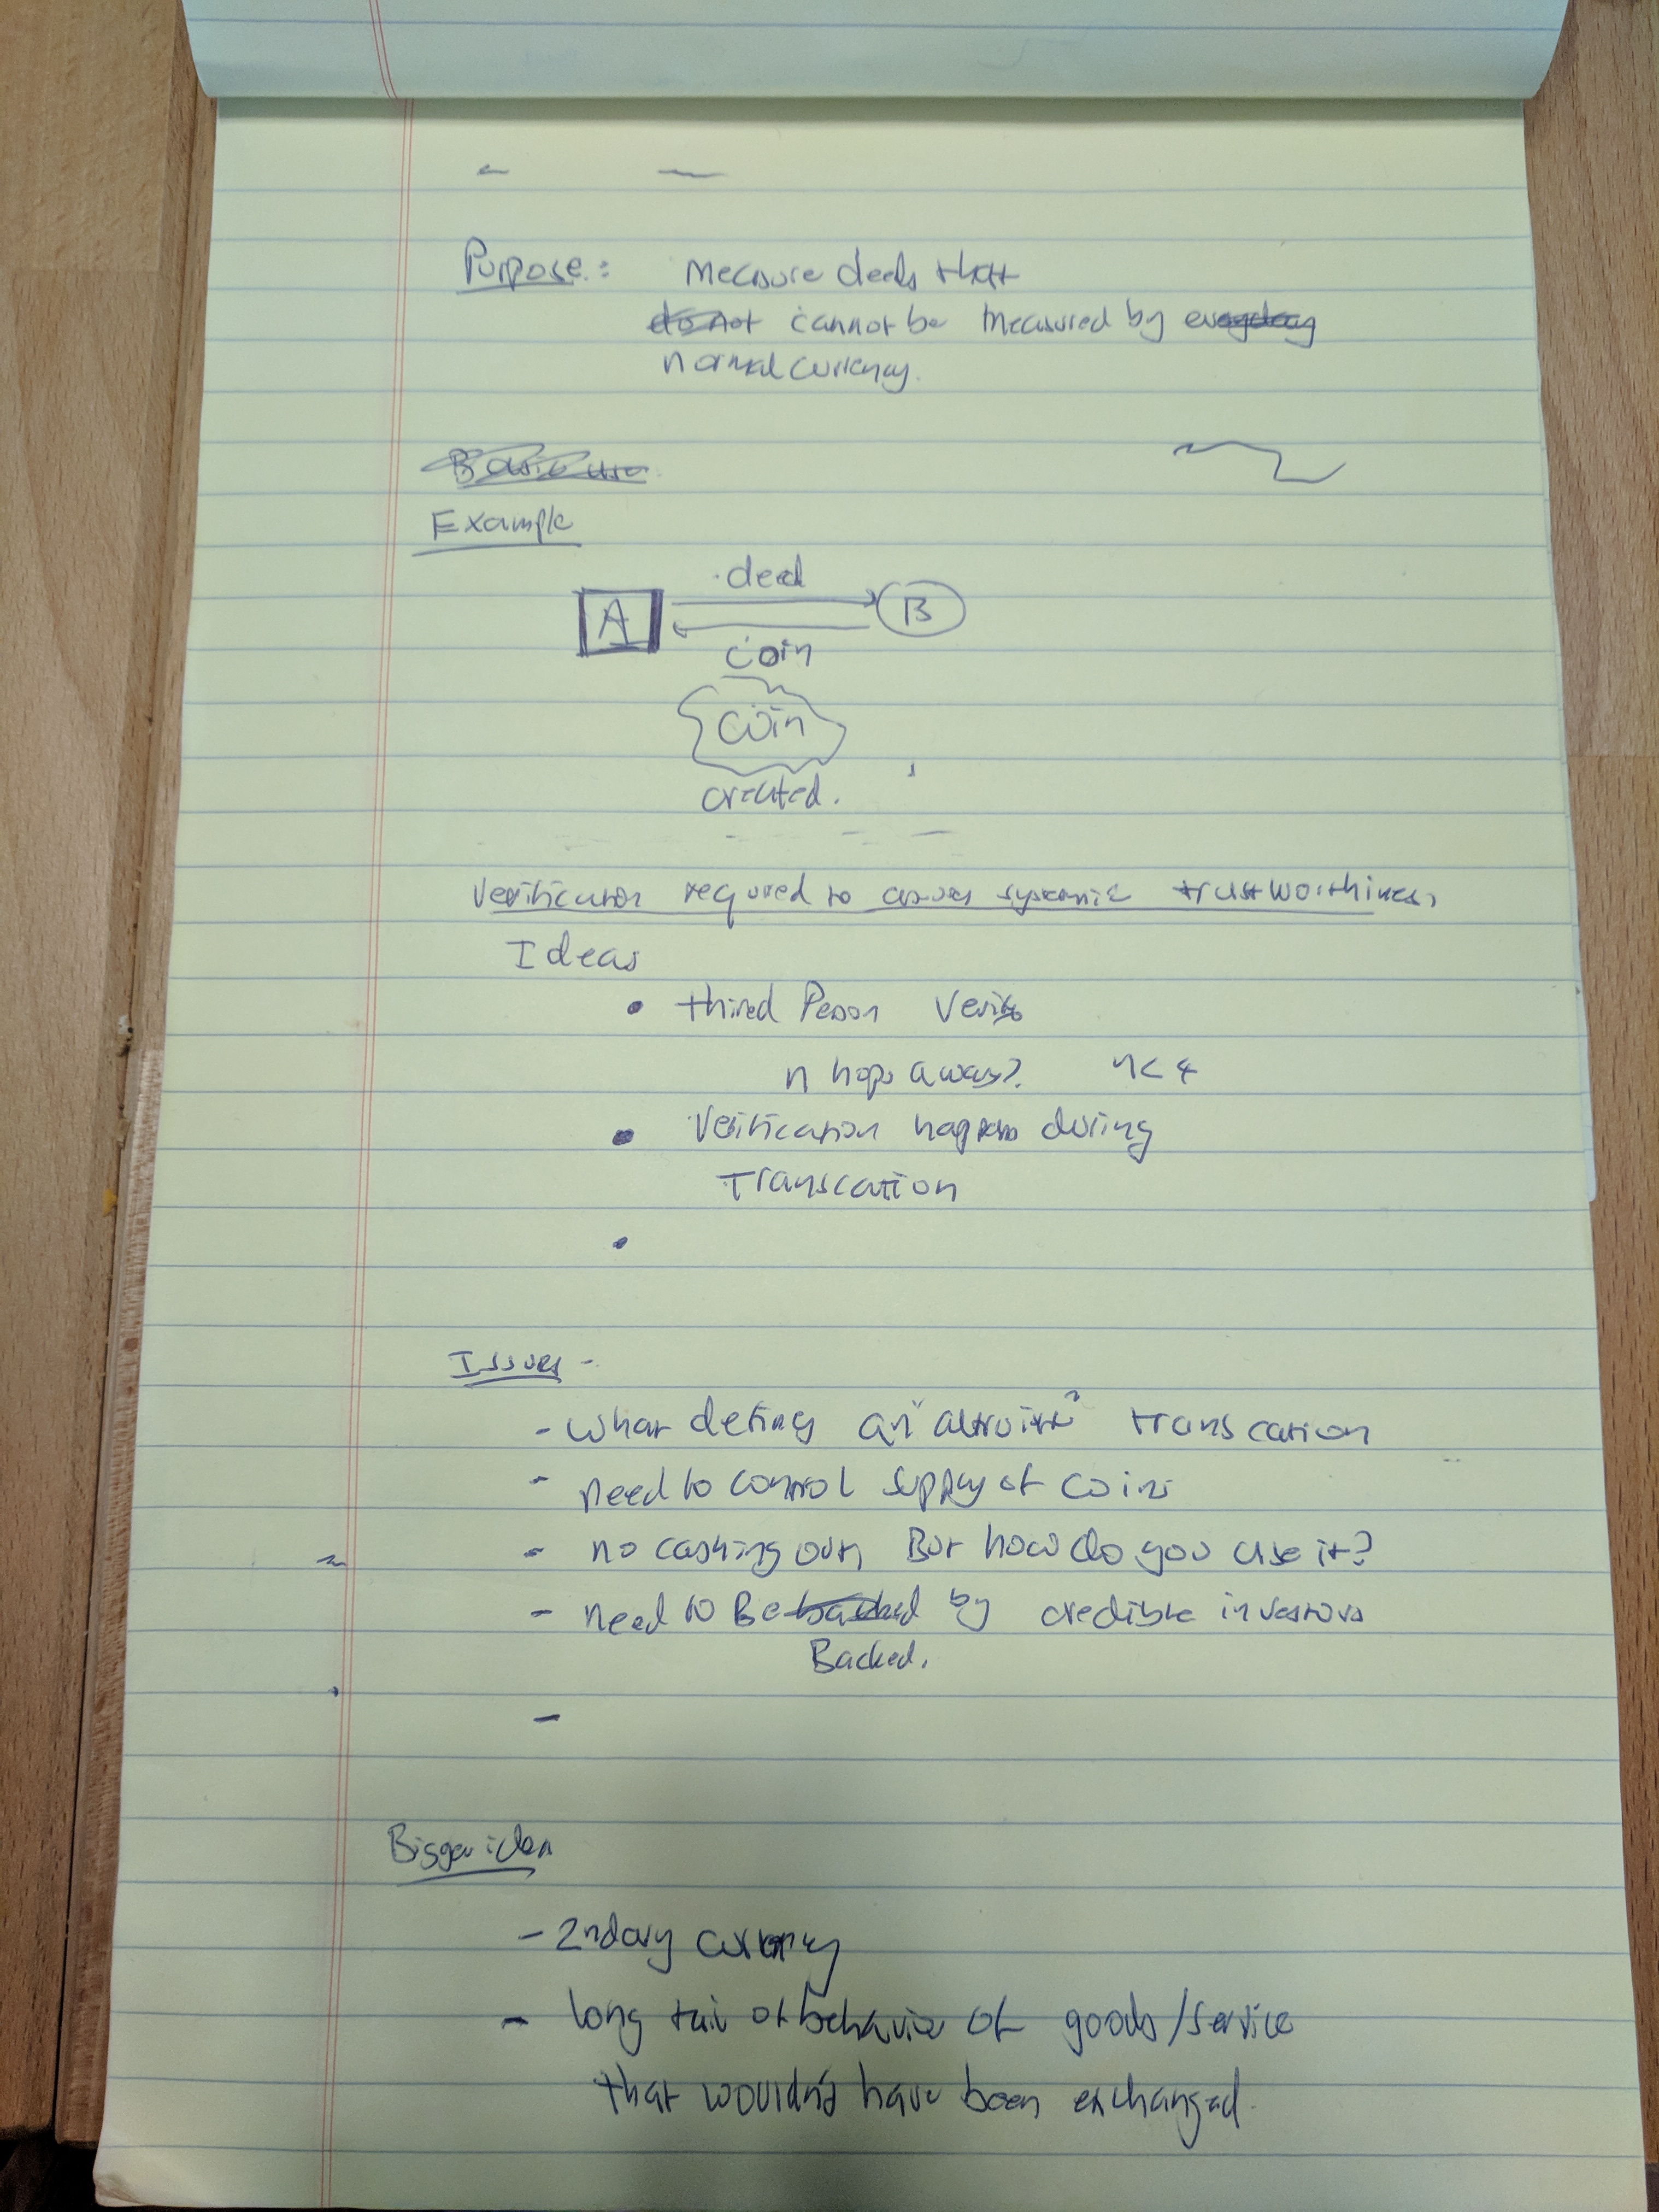 Purpose: Measure deeds that
do not cannot be measured by everyday
normal currency.
Basic use
Example
deed
A B
coin
coin
created.
Verification required to assures systemic trustworthiness,
Ideas
• third Person Verify
n hops away? n<4
• Verification happens during
Transcation
•
Issues -
- what defines an "altruistic" transcation
- need to control supply of coins
- no cashing out, But how do you use it?
- need to Be backed by credible investors
Backed.
-
Bigger idea
- 2ndary currency
- long tail of behavior of goods/service
that wouldn't have been exchanged.